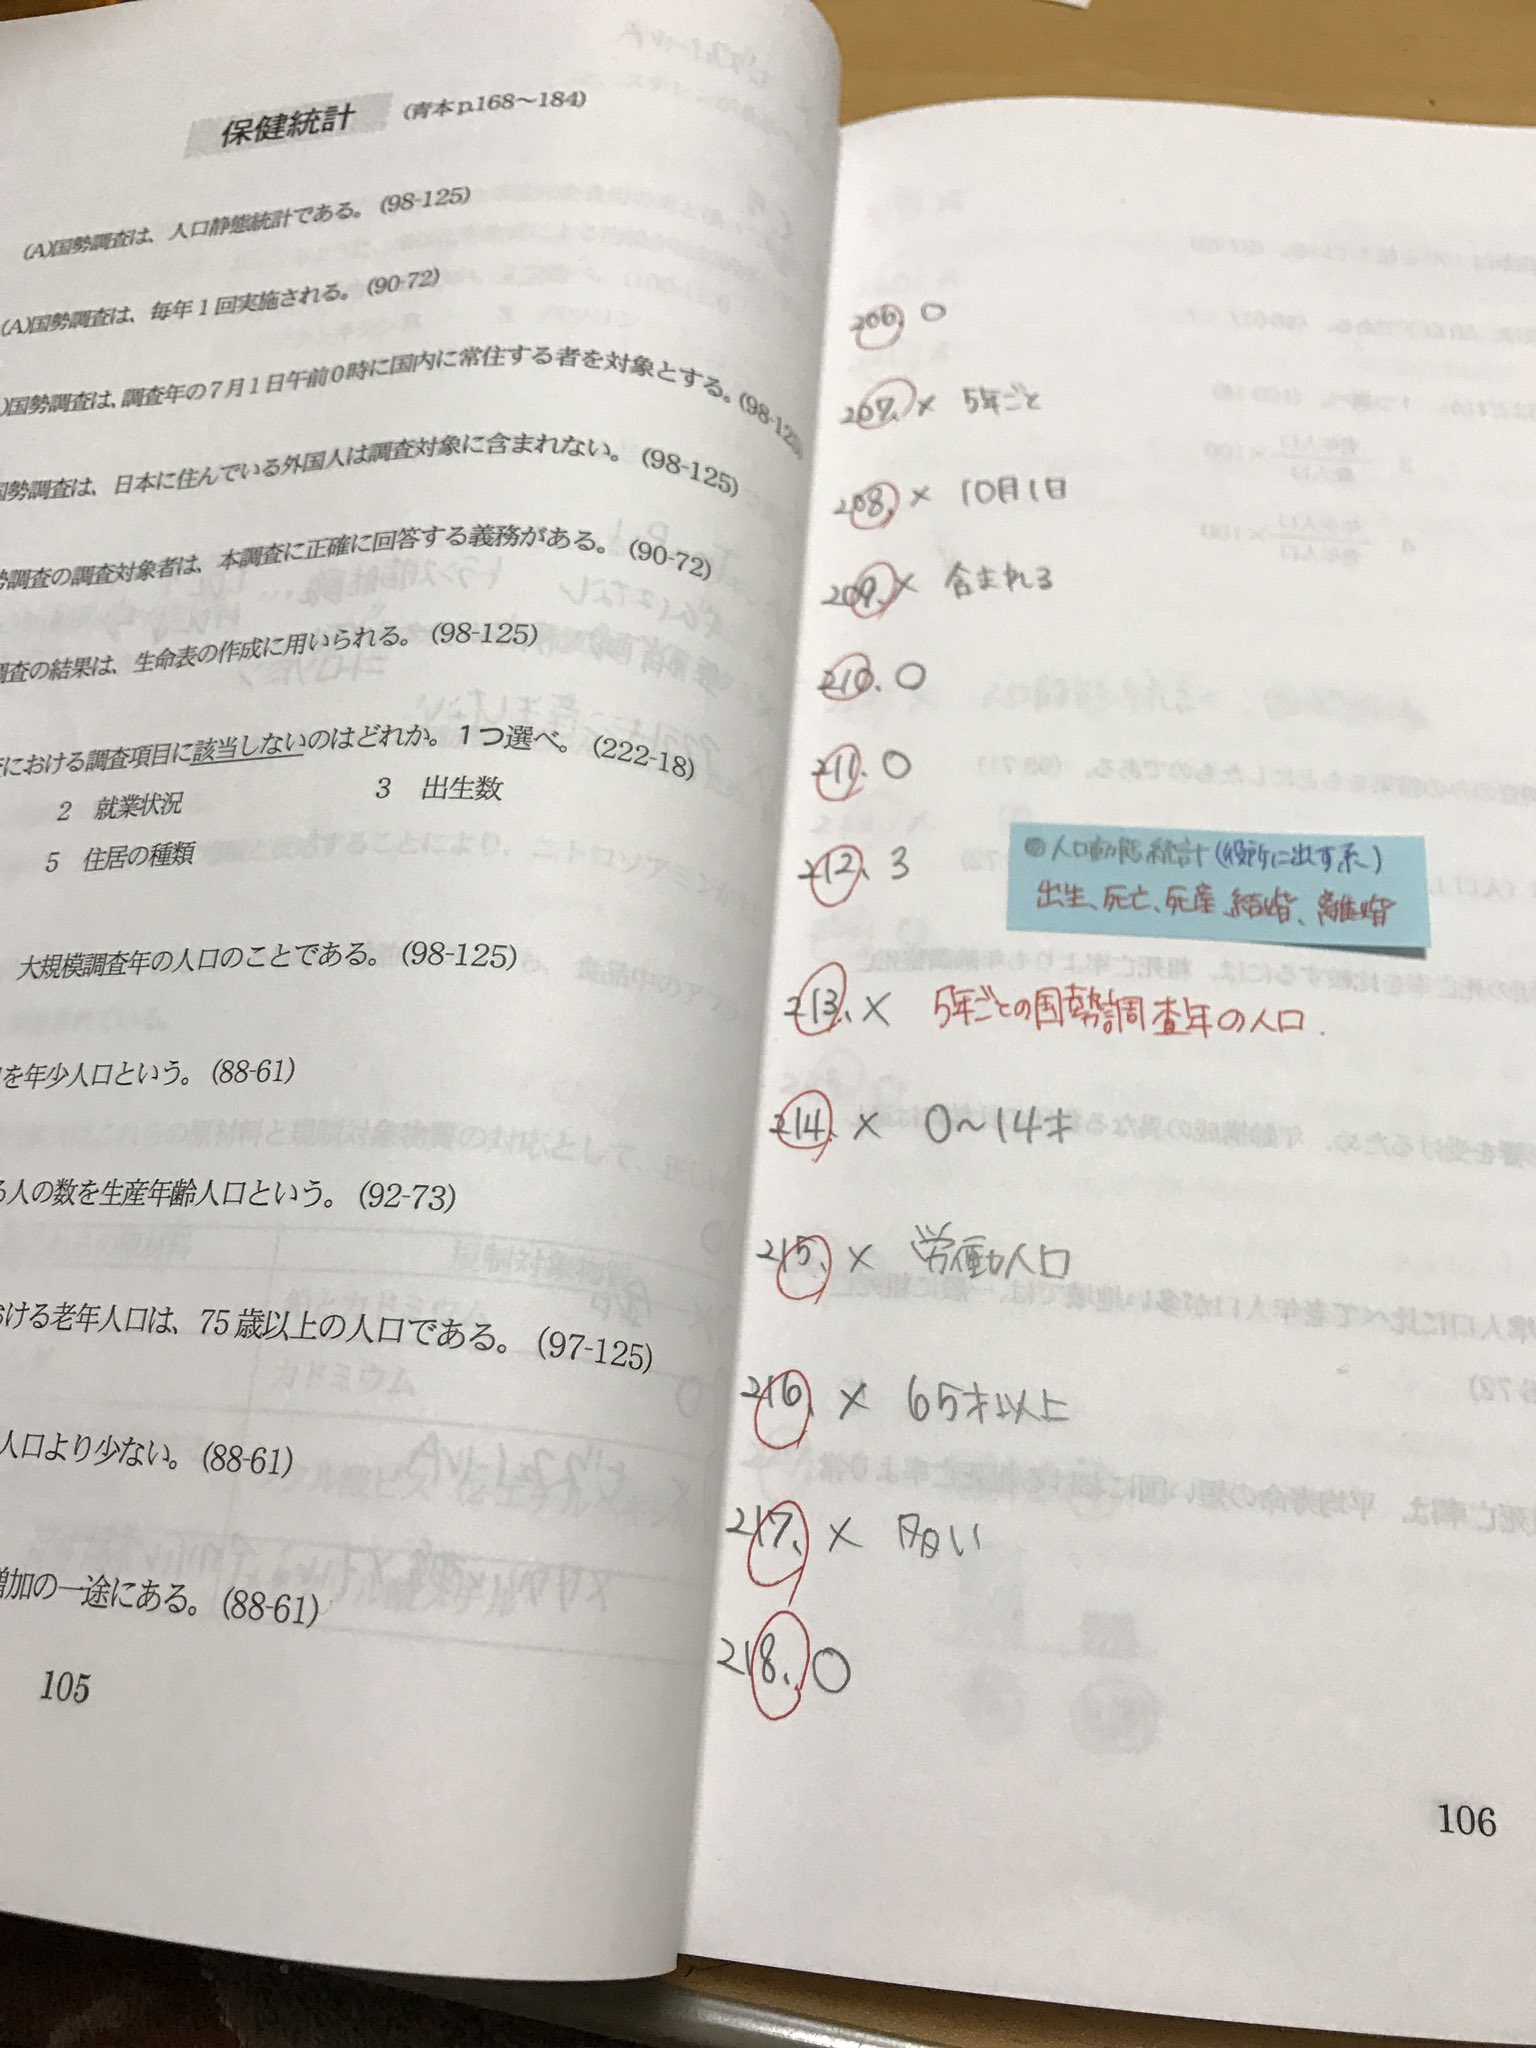 保健統計 (青本p.168～184)
(A)国勢調査は、人口静態統計である。(98-125)
(A)国勢調査は、毎年1回実施される。(90-72)
)国勢調査は、調査年の7月1日午前0時に国内に常住する者を対象とする。(98-125)
国勢調査は、日本に住んでいる外国人は調査対象に含まれない。(98-125)
勢調査の調査対象者は、本調査に正確に回答する義務がある。(90-72)
調査の結果は、生命表の作成に用いられる。(98-125)
における調査項目に該当しないのはどれか。1つ選べ。(222-18)
2 就業状況 3 出生数
5 住居の種類
大規模調査年の人口のことである。(98-125)
を年少人口という。(88-61)
る人の数を生産年齢人口という。(92-73)
おける老年人口は、75歳以上の人口である。(97-125)
人口より少ない。(88-61)
増加の一途にある。(88-61)
105
206. ○
207. × 5年ごと
208. × 10月1日
209. × 含まれる
210. ○
211. ○
212. 3
人口動態統計(役所に出す系)
出生、死亡、死産、結婚、離婚
213. × 5年ごとの国勢調査年の人口.
214. × 0～14才
215. × 労働人口
216. × 65才以上
217. × 多い
218. ○
106